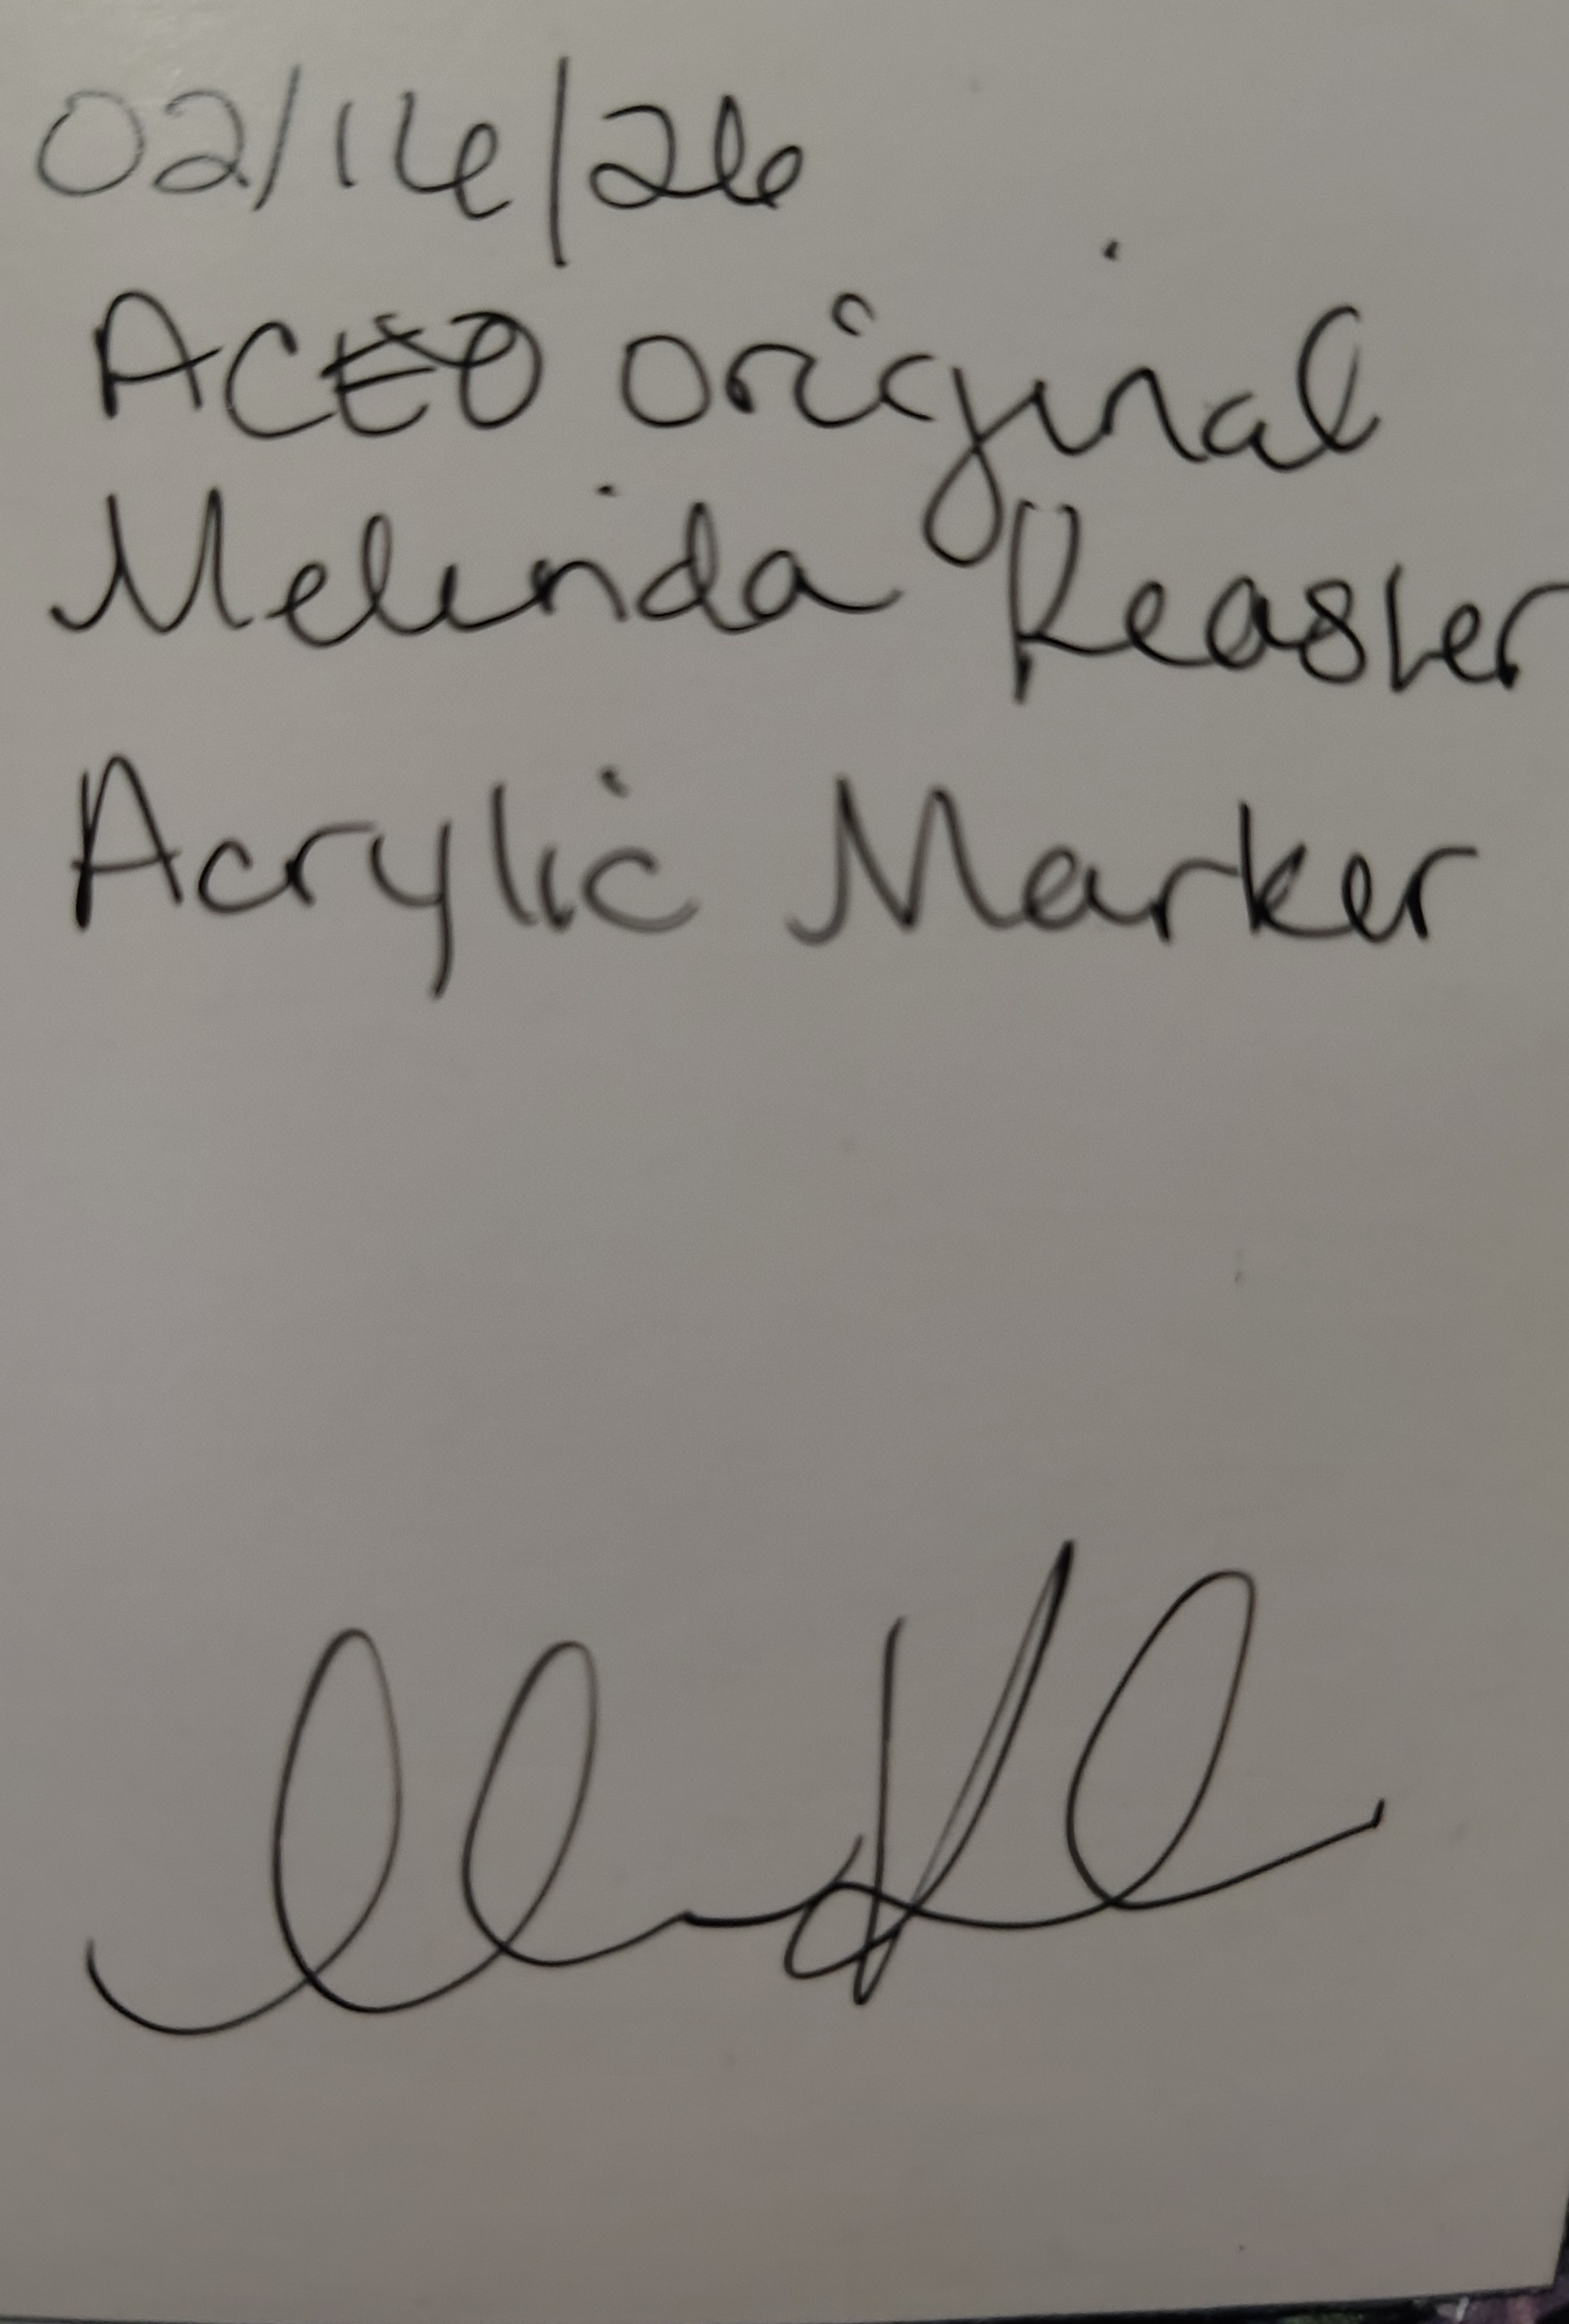 02/16/26
ACEO Original
Melinda Reasler
Acrylic Marker